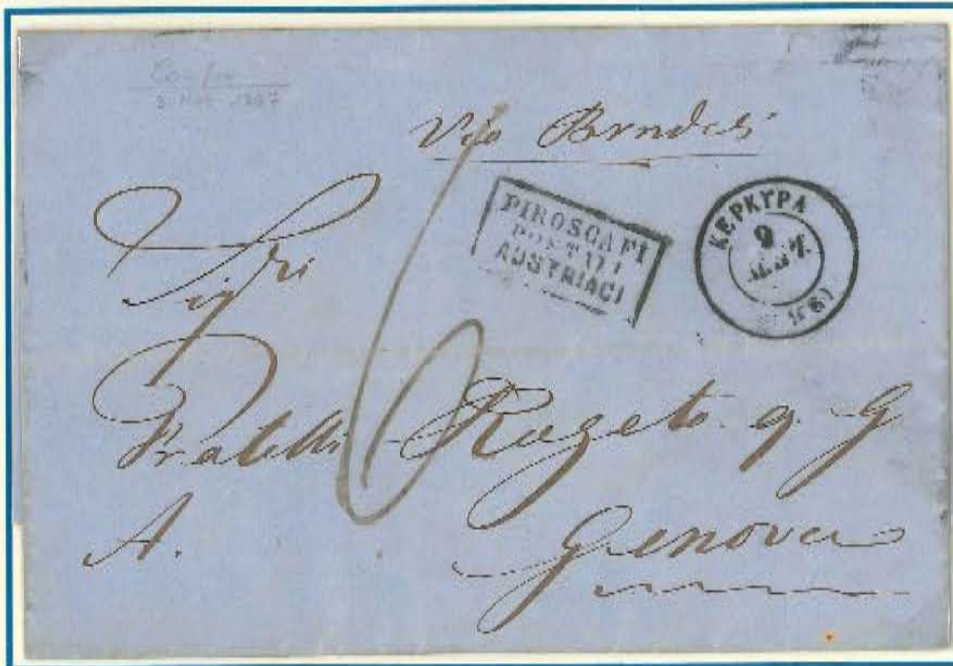 Corfu
3 1867
Via Brindisi
PIROSCAFI
POSTALI
AUSTRIACI
ΚΕΡΚΥΡΑ
9
6
Sigri
Fratelli Razeto q. G
A.
Genova